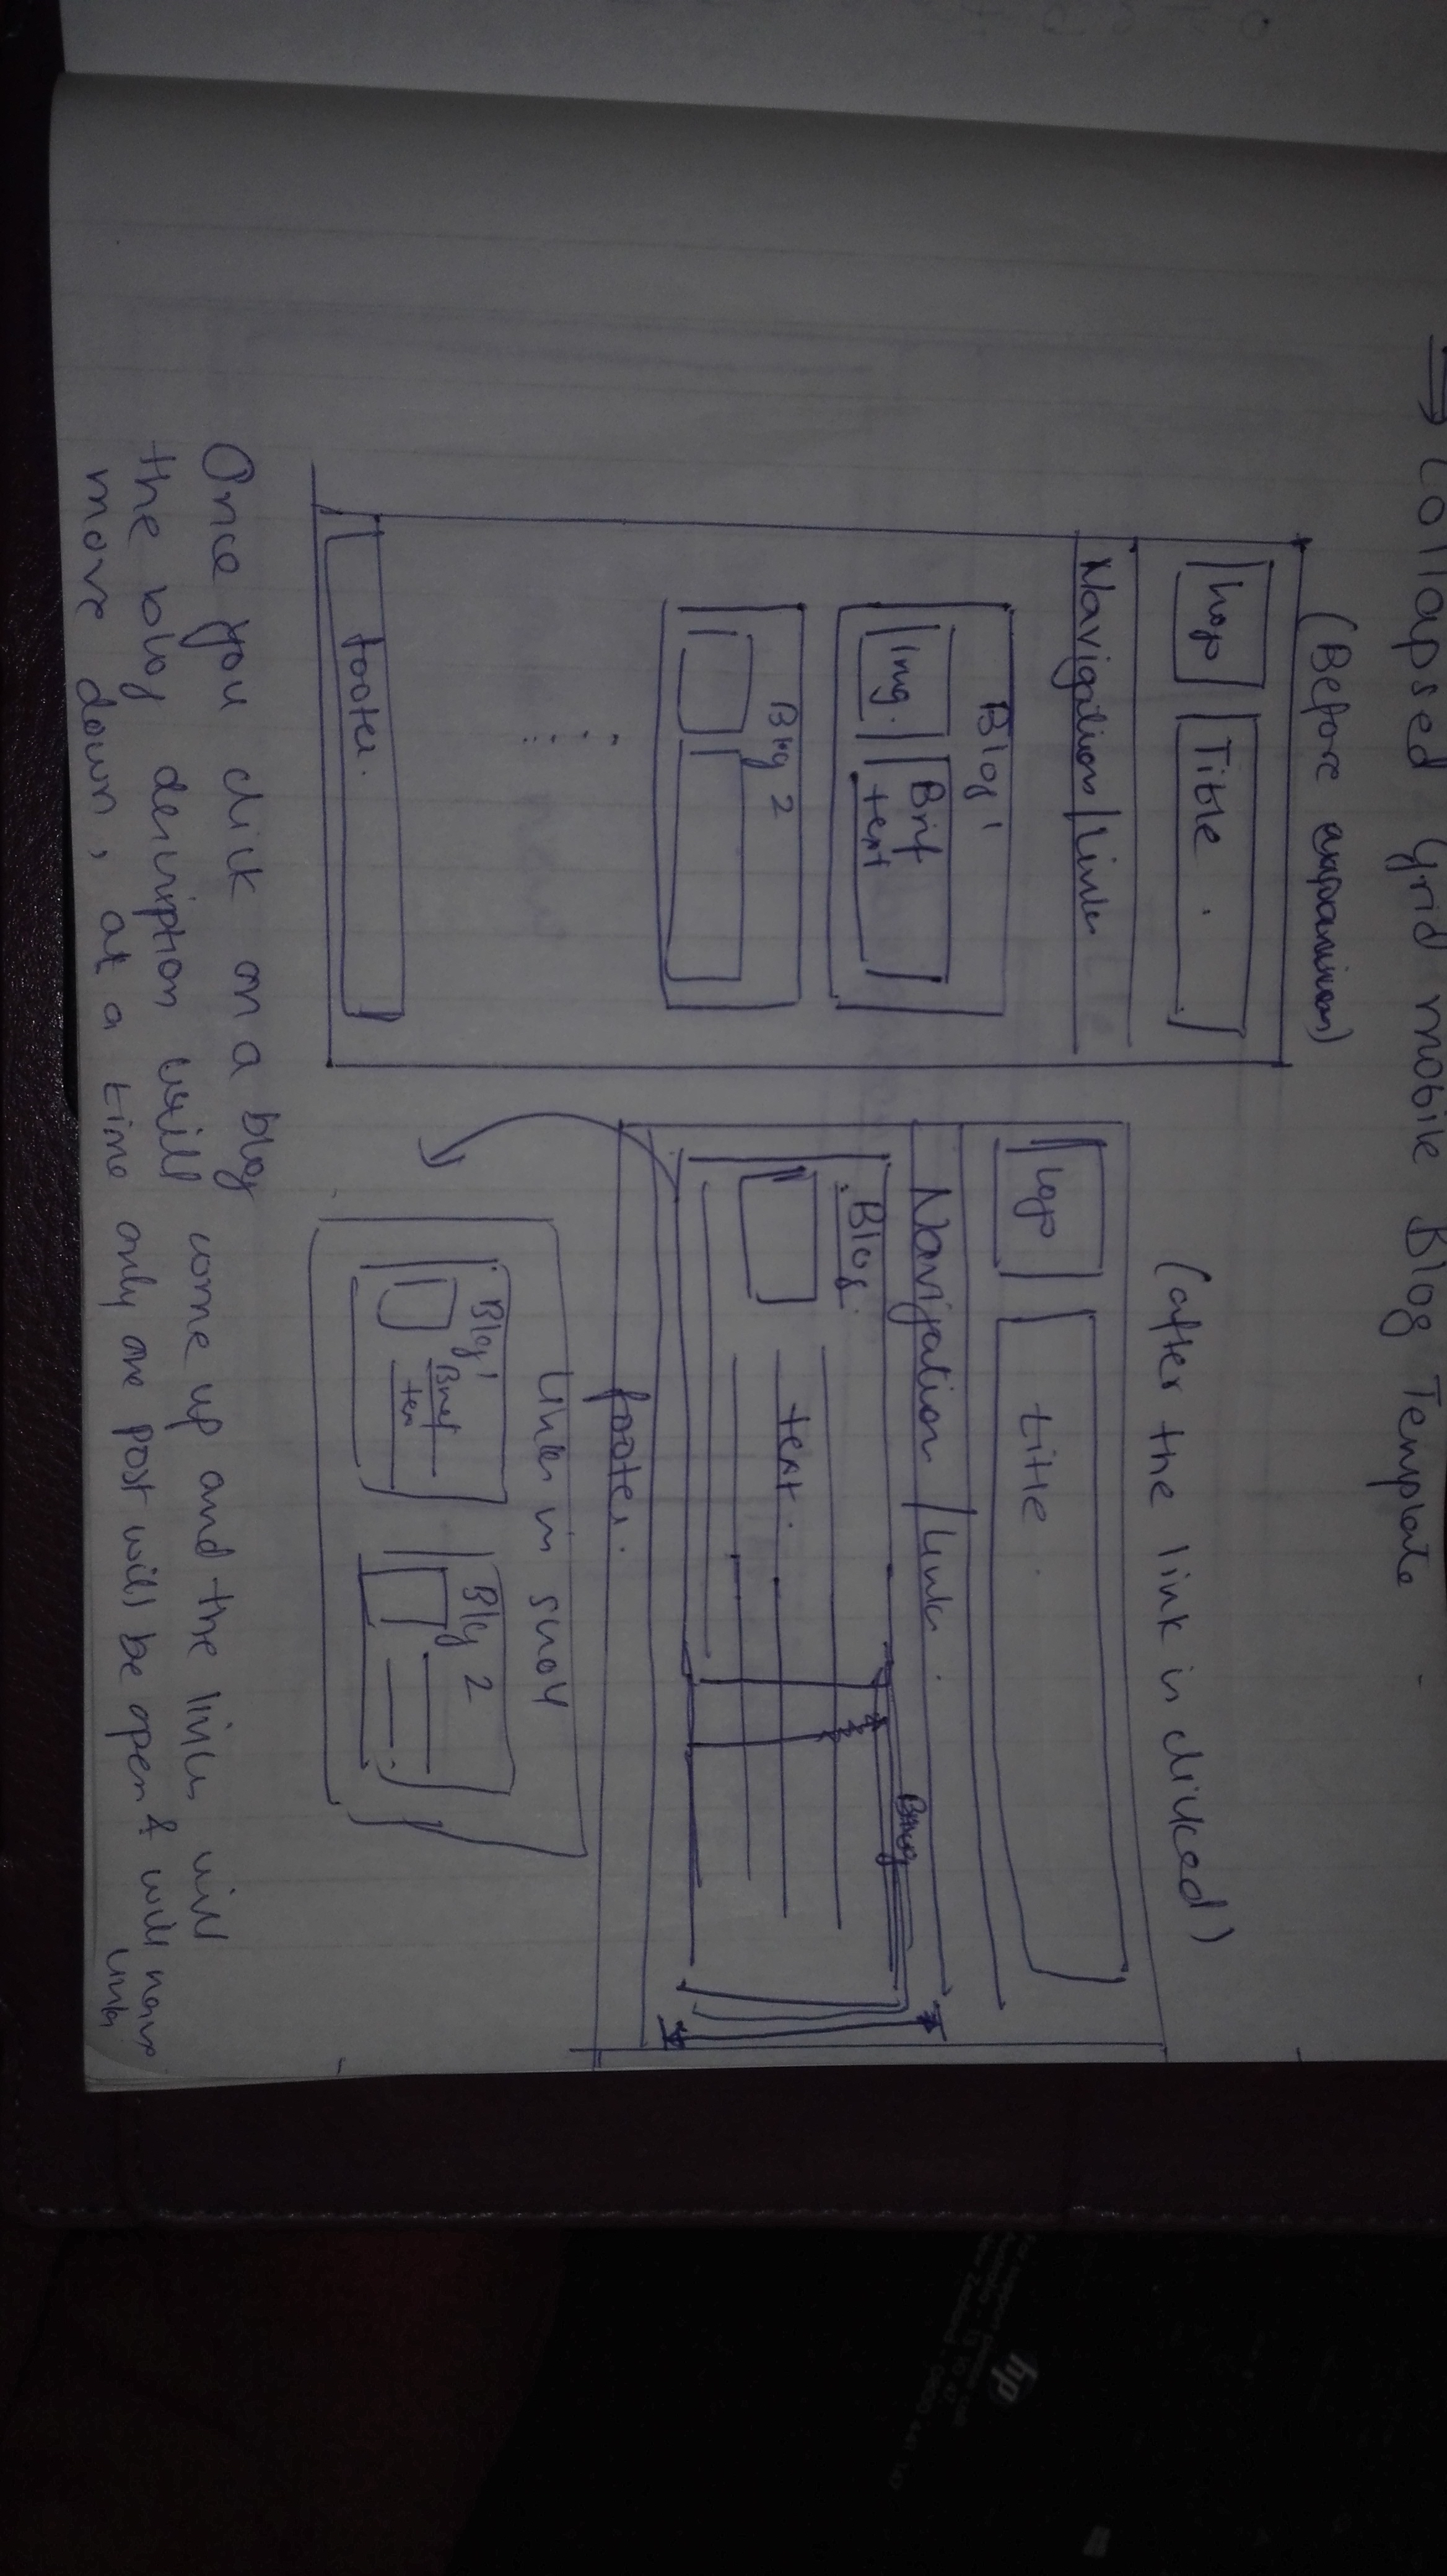 → Collapsed Grid mobile Blog Template
(Before expansion)
Logo
Title.
Navigation/Links
Blog 1
Img.
Brif
text
Blog 2
footer.
(after the link is clicked)
Logo
title.
Navigation/Links.
Blog.
text.
footer.
Links in
Blog 1
Brief
Blog 2
Once you click on a blog
the blog description will come up and the links will
move down, at a time only one post will be open & will have
links
hp